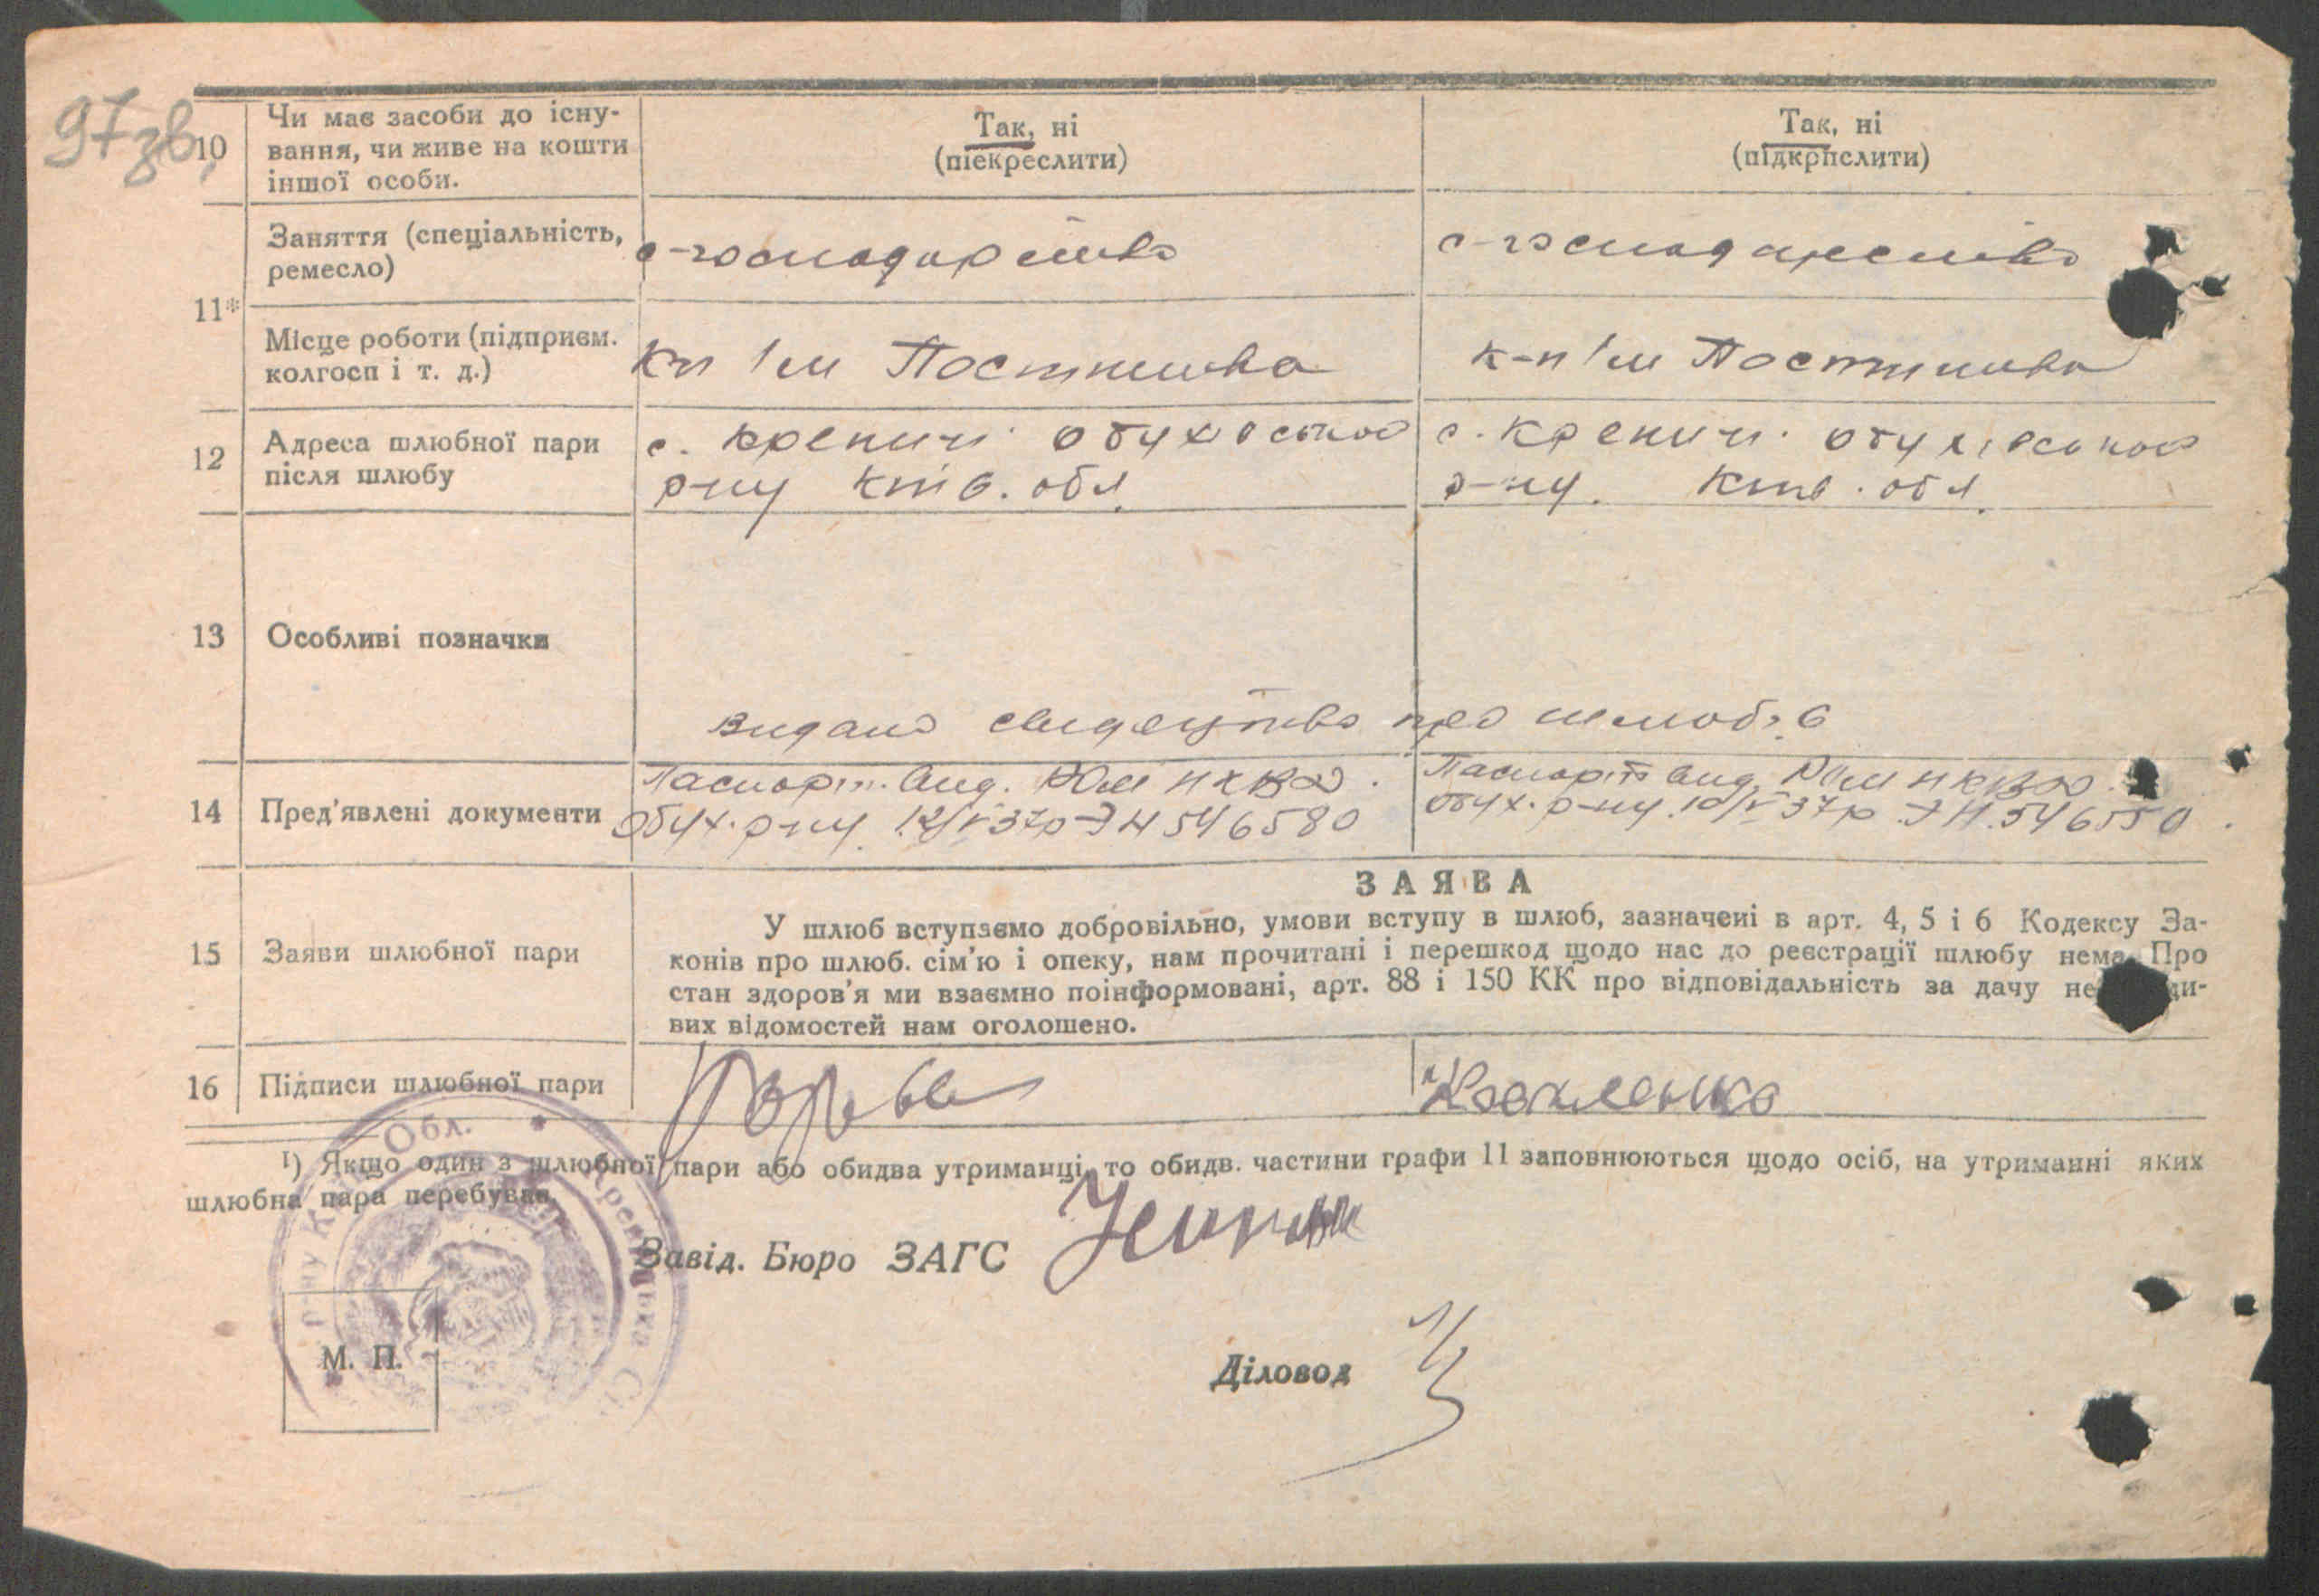 97зв.
10 Чи має засоби до існу-
вання, чи живе на кошти
іншої особи.
Так, ні
(піекреслити)
Так, ні
(підкрпслити)
11*
Заняття (спеціальність,
ремесло)
с-господарство
с-господарство
Місце роботи (підприєм.
колгосп і т. д.)
к-п ім Постишева
к-п ім Постишева
12 Адреса шлюбної пари
після шлюбу
с. Креничі Обухівськог
р-ну Київ. обл.
с. Креничі Обухівськог
р-ну. Київ. обл.
13 Особливі позначки
Видано свидецтво про шлюб
14 Пред'явлені документи
Паспорт. вид. РОМ НКВД.
Обух. р-ну 12/V 37р ЭН 546580
Паспорт вид. РОМ НКВД.
Обух. р-ну. 10/V 37р. ЭН. 546550.
15 Заяви шлюбної пари
ЗАЯВА
У шлюб вступаємо добровільно, умови вступу в шлюб, зазначені в арт. 4, 5 і 6 Кодексу За-
конів про шлюб. сім'ю і опеку, нам прочитані і перешкод щодо нас до реєстрації шлюбу нема Про
стан здоров'я ми взаємно поінформовані, арт. 88 і 150 КК про відповідальність за дачу не ди-
вих відомостей нам оголошено.
16 Підписи шлюбної пари
1) Якщо один з шлюбної пари або обидва утриманці, то обидв. частини графи 11 заповнюються щодо осіб, на утриманні яких
шлюбна пара перебуває.
Завід. Бюро ЗАГС
Обл.
М. П.
Діловод